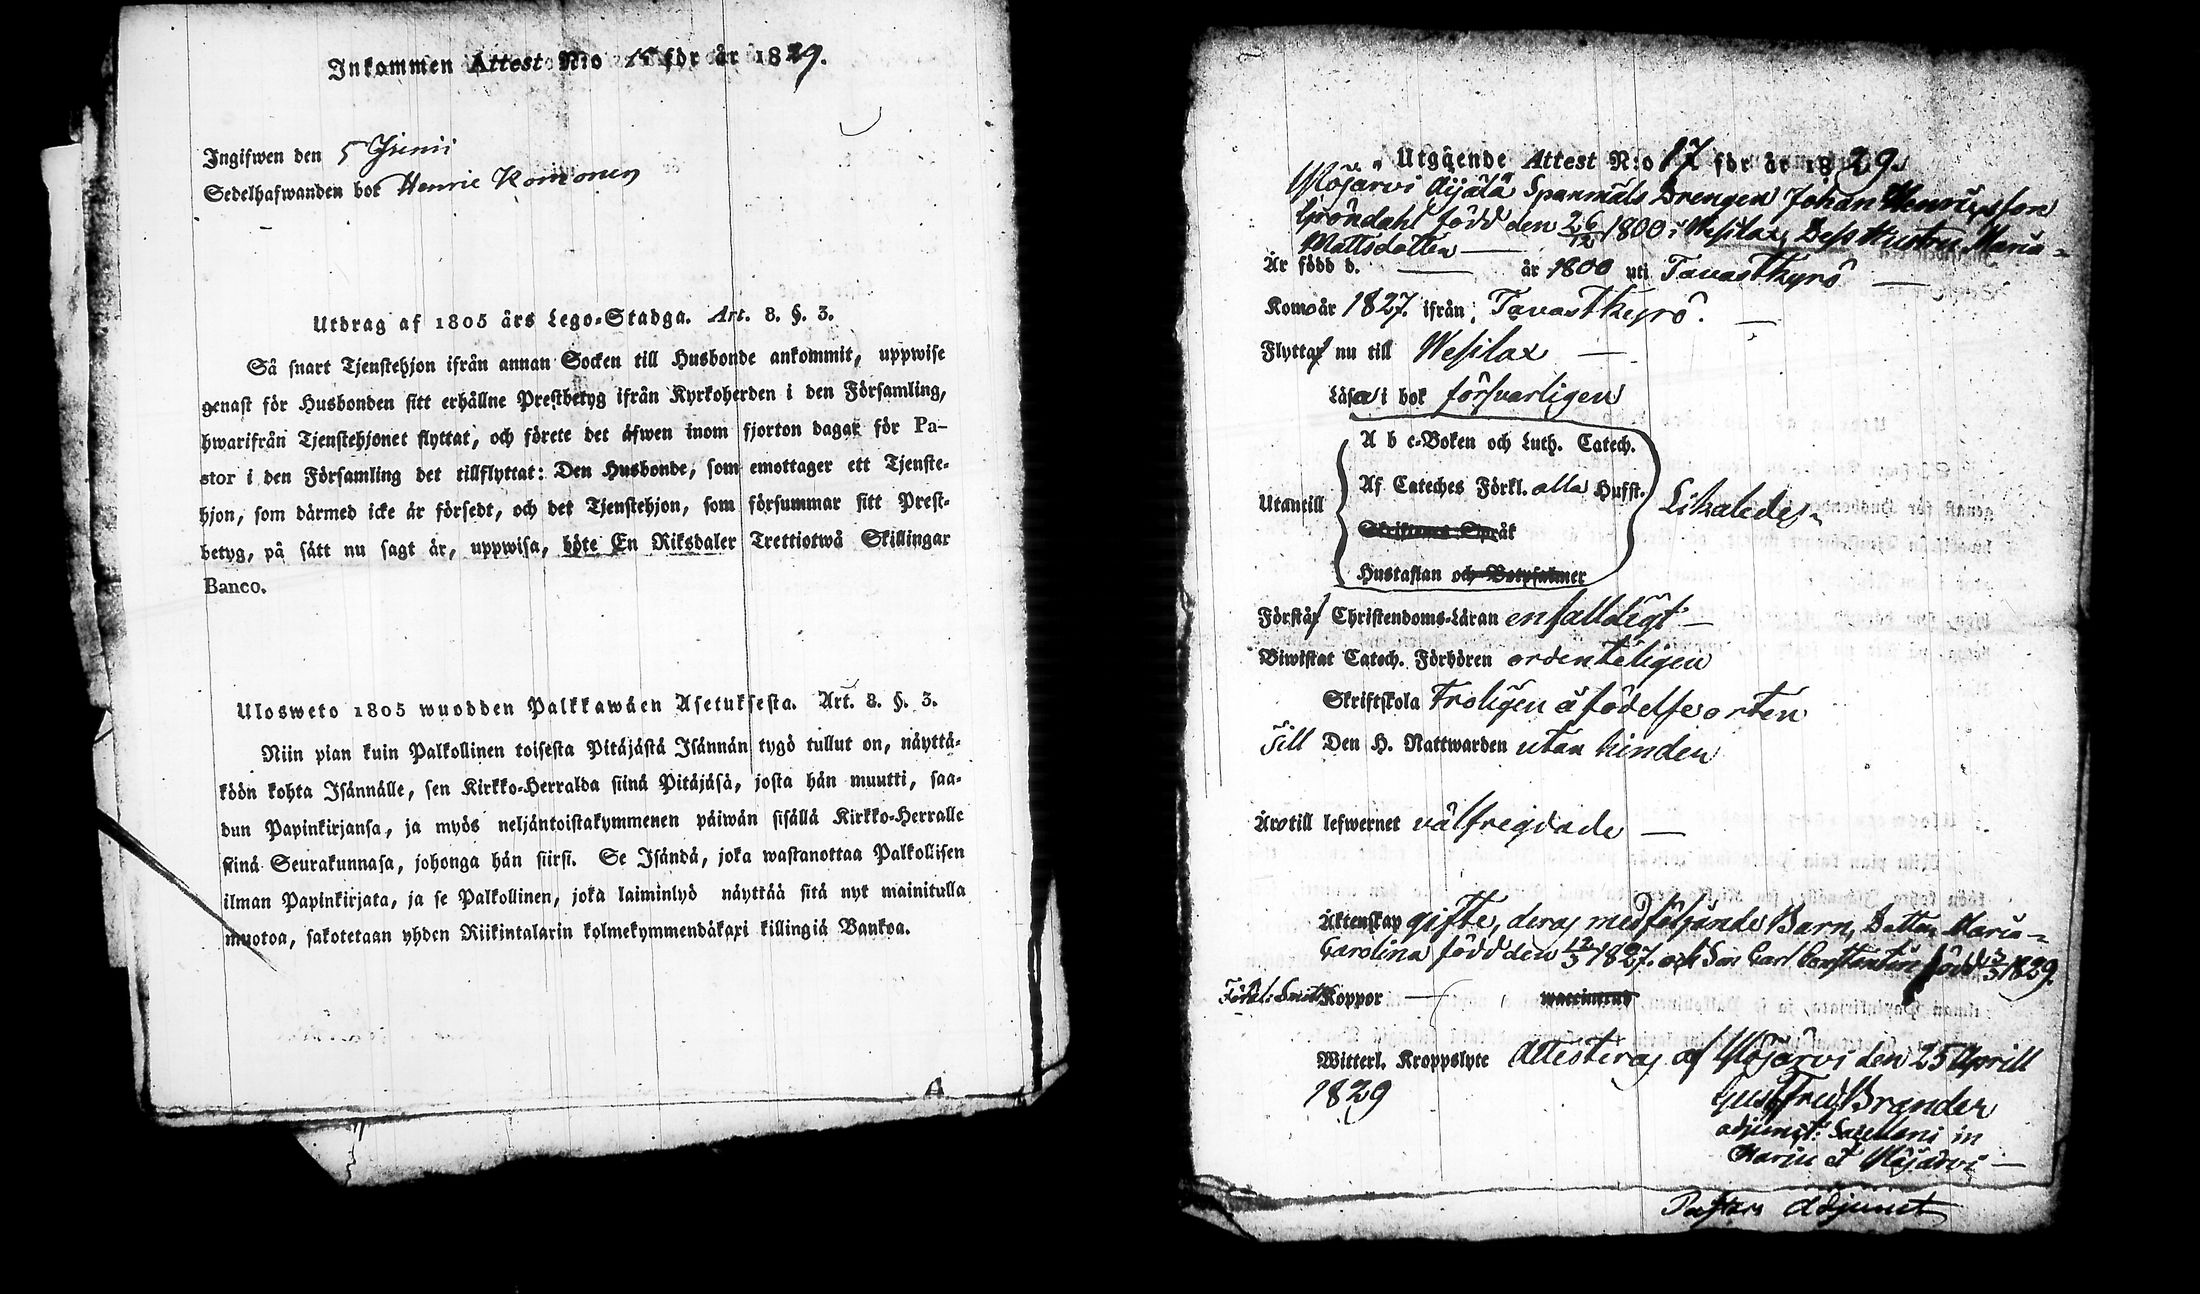 Inkommen Attest N:o 15 för år 1829.
Ingifwen den 5 Junii
Sedelhafwanden bor Henric Komonen
Utdrag af 1805 års Lego-Stadga. Art. 8. §. 3.
Så snart Tjenstehjon ifrån annan Socken till Husbonde ankommit, uppwise
genast för Husbonden sitt erhållne Prestbetyg ifrån Kyrkoherden i den Församling,
hwarifrån Tjenstehjonet flyttat, och förete det äfwen inom fjorton dagar för Pa-
stor i den Församling det tillflyttat: Den Husbonde, som emottager ett Tjenste-
hjon, som därmed icke är försedt, och det Tjenstehjon, som försummar sitt Prest-
betyg, på sätt nu sagt är, uppwisa, böte En Riksdaler Trettiotwå Skillingar
Banco.
Ulosweto 1805 wuodden Palkkawäen Asetuksesta. Art. 8. §. 3.
Niin pian kuin Palkollinen toisesta Pitäjästä Isännän tygö tullut on, näyttä-
köön kohta Isännälle, sen Kirkko-Herralda siinä Pitäjäsä, josta hän muutti, saa-
dun Papinkirjansa, ja myös neljäntoistakymmenen päiwän sisällä Kirkko-Herralle
siinä Seurakunnasa, johonga hän siirsi. Se Isändä, joka wastanottaa Palkollisen
ilman Papinkirjata, ja se Palkollinen, joka laiminlyö näyttää sitä nyt mainitulla
muotoa, sakotetaan yhden Riikintalarin kolmekymmendäkaxi killingiä Bankoa.
Utgående Attest N:o 17 för år 1829.
Ylöjärvi Äijälä Spanmåls Drengen Johan Henricsson
Gröndahl född den 26/12 1800 i Wesilax, Dess Hustru Maria
Mattsdotter
Är född d. — år 1800 uti Tavastkyro —
Kom år 1827. ifrån Tavastkyrö. —
Flytta nu till Wesilax —
Läsa i bok försvarligen
A b c-Boken och Luth. Catech.
Af Cateches Förkl. alla Hufst.
Utantill
Likaledes
Skriftenes Språk
Hustaflan och Botpsalmer
Förstå Christendoms-Läran enfalldigt —
Biwistat Catech. Förhören ordenteligen
Skriftskola Troligen å födelseorten
Till Den H. Nattwarden utan hinder
Äro till lefwernet välfregdade —
Äktenskap gifte, deras medföljande Barn, Dotter Maria
Carolina född den 12/5 1827. och Son Carl Constantin född 3/3 1829.
Koppor —
Witterl. Kroppslyte Attesteras af Ylöjärvi den 25 Aprill
1829
Gust. Fred. Brander
adjunct: Sacellani in
Harju et Ylöjärvi —
Pastors Adjunct